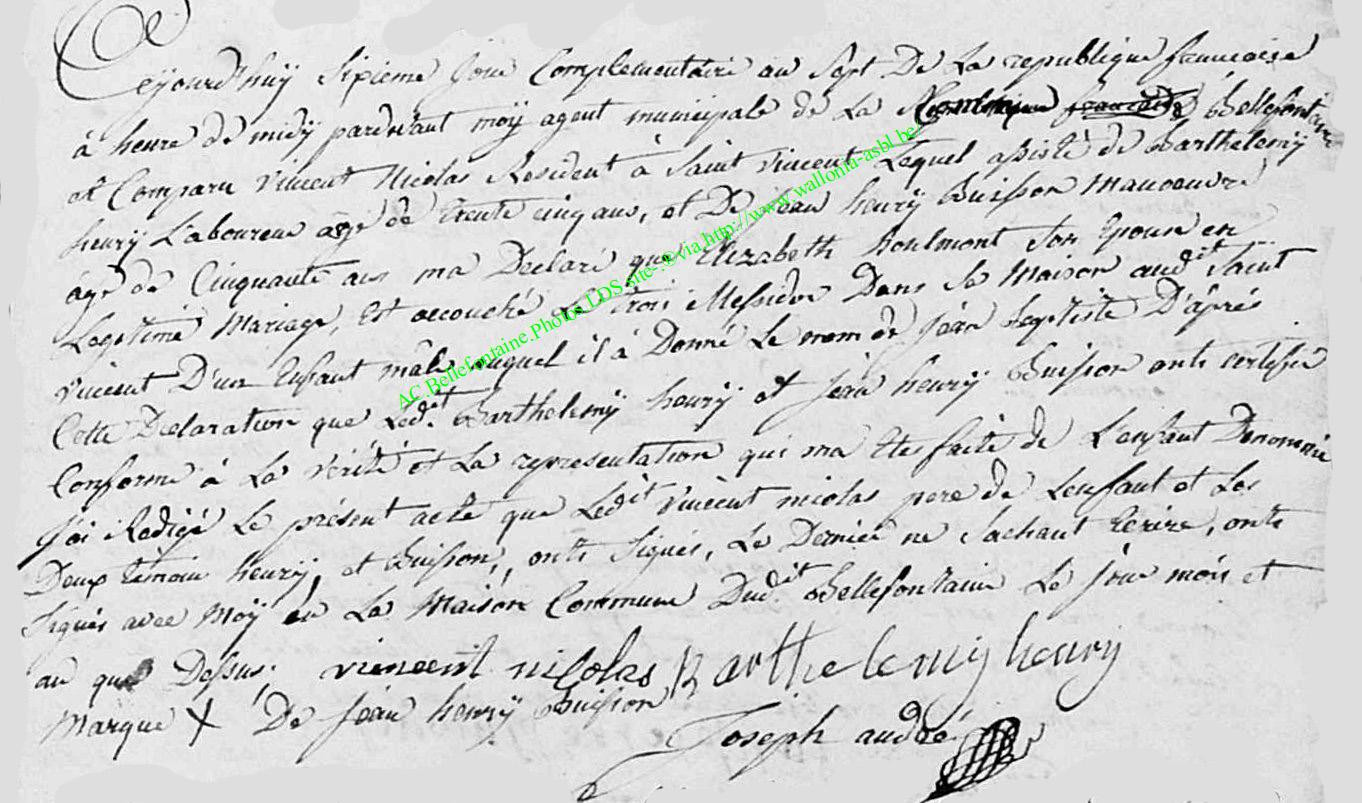 Cejourd'huÿ Sixieme Jour Complementaire an Sept De La republique francaise
à heure de midÿ pardevant moÿ agent municipale de La Commune francaise Bellefontaine
est Comparu Vincent Nicolas Resident à Saint Vincent Lequel assisté de Barthelemÿ
henrÿ L'aboureur agé de trente cinq ans, et De jean henrÿ Buisson Manoeuvre
âgé de Cinquante ans ma Declaré que Elizabeth houlmont Son Epouse en
Legitime Mariage, Est accouché Le trois Messidor Dans Sa Maison audit Saint
Vincent D'un Enfant mâle auquel il à Donné Le nom de Jean Baptiste D'après
Cette Declaration que Ledit Barthelemÿ henrÿ et Jean henrÿ Buisson onts certifié
Conforme à La Vérité et La representation qui ma Eté faite de L'enfant Denommé
J'ai Redigé Le présent acte que Ledit Vincent nicolas pere de Lenfant et Les
Deux temoin henrÿ, et Buisson, onts Signés, Le Dernier ne Sachant Ecrire, onts
Signés avec Moÿ en La Maison Commune Dudit Bellefontaine Le Jour mois et
an que Dessus. viencent nicolas Barthelemij henrij
Marque X De Jean henrÿ Buisson
Joseph andré
AC.Bellefontaine.Photos LDS site-.®via.http://www.wallonia-asbl.be/